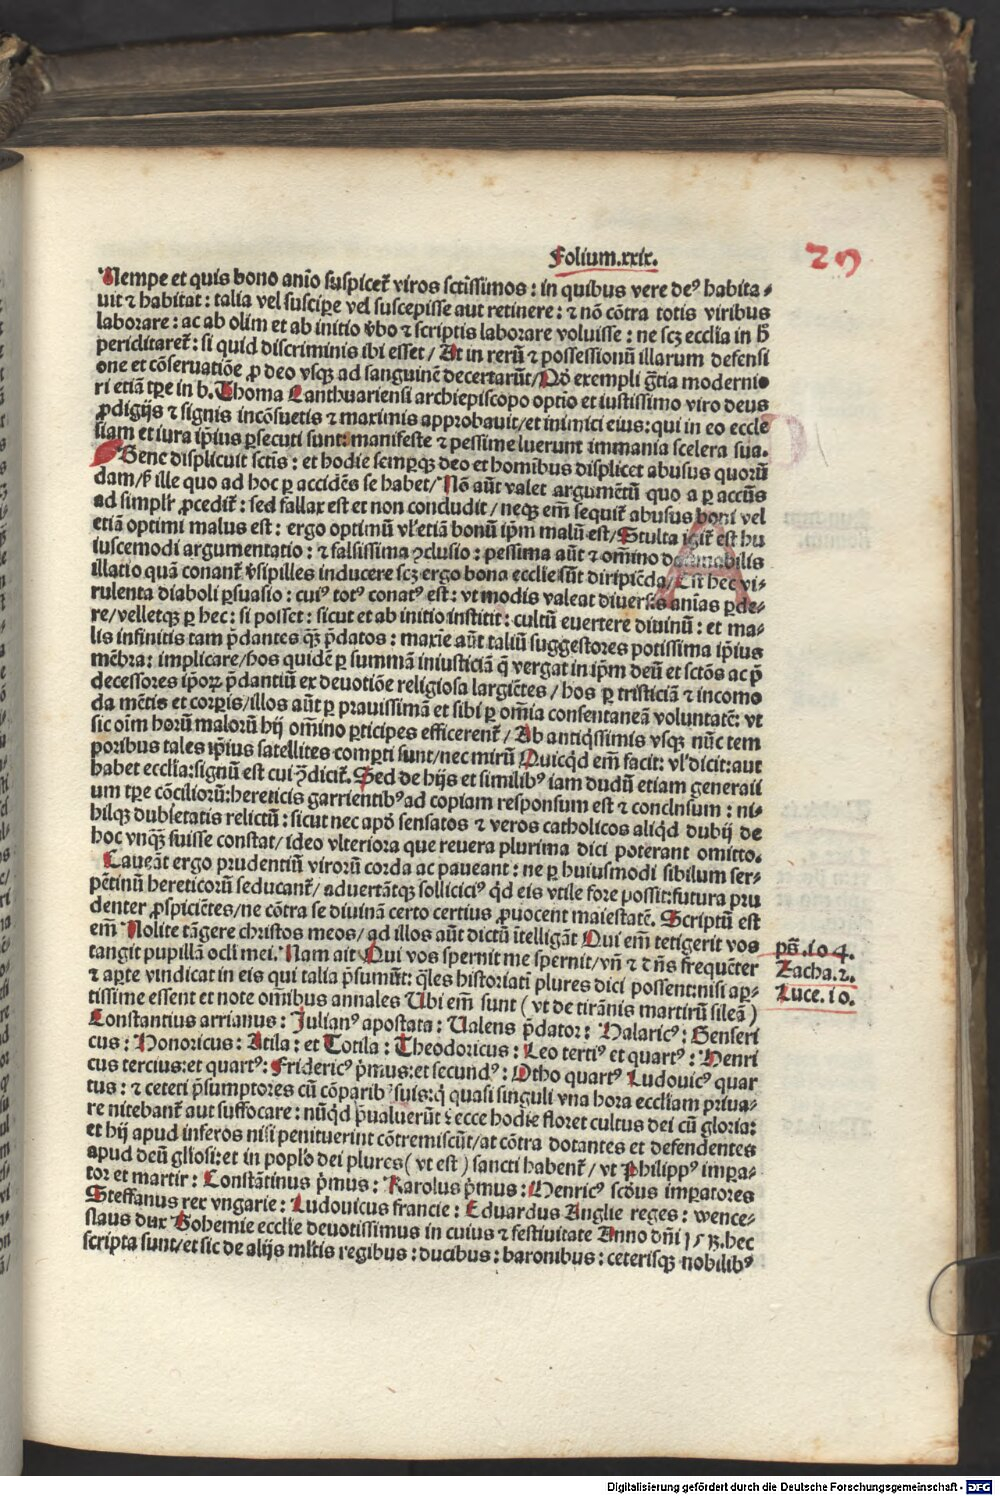 Folium.xxix.
29
Nempe et quis bono anĩo suspicet᷑ viros sctissimos : in quibus vere de⁹ habita⸗
uit ⁊ habitat : talia vel suscipe vel suscepisse aut retinere : ⁊ nõ cõtra totis viribus
laborare : ac ab olim et ab initio v̾bo ⁊ scriptis laborare voluisse : ne scȝ ecclia in h̾
periditaret᷑ : si quid discriminis ibi esset / At in rerũ ⁊ possessionũ illarum defensi
one et cõseruatiõe ꝓ deo vsqꝫ ad sanguinẽ decertarũt / exempli gr̃tia modernio
ri etiã tp̃e in b. Thoma Canthuariensi archiepiscopo optĩo et iustissimo viro deus
ꝓdigijs ⁊ signis incõsuetis ⁊ maximis approbauit / et inimici eius : qui in eo eccle
siam et iura ip̃ius ꝑsecuti sunt : manifeste ⁊ pessime luerunt immania scelera sua.
Bene displicuit sctĩs : et hodie semꝑqꝫ deo et homĩbus displicet abusus quorũ
dam / ille quo ad hoc ꝑ accidẽs se habet / Nõ aũt valet argumẽtũ quo a ꝑ accñs
ad simplr̃ ꝓcedit᷑ : sed fallax est et non concludit / neqꝫ em̃ sequit᷑ abusus boni vel
etiã optimi malus est : ergo optimũ vl̾ etiã bonũ ip̃m malũ est / Stulta igit᷑ est hu
iuscemodi argumentatio : ⁊ falsissima ꝯclusio : pessima aũt ⁊ om̃ino damnabilis
illatio quã conant᷑ v̾sipilles inducere scȝ ergo bona ecclie sũt diripiẽda / Est hec vi⸗
rulenta diaboli ꝑsuasio : cui⁹ tot⁹ conat⁹ est : vt modis valeat diuersis anĩas ꝑde⸗
re / velletqꝫ ꝑ hec : si posset : sicut et ab initio institit : cultũ euertere diuinũ : et ma⸗
lis infinitis tam p̃dantes qꝫ p̃datos : maxĩe aũt taliũ suggestores potissima ip̃ius
mẽbra : implicare / hos quidẽ ꝑ summã iniusticiã q̃ vergat in ip̃m deũ et sctõs ac p̃
decessores ip̃oꝝ p̃dantiũ ex deuotiõe religiosa largiẽtes / hos ꝑ tristiciã ⁊ incomo
da mẽtis et corꝑis / illos aũt ꝑ prauissimã et sibi ꝑ om̃ia consentaneã voluntatẽ : vt
sic oĩm horũ malorũ hij om̃ino ꝑticipes efficerent᷑ / Ab antiq̃ssimis vsqꝫ nũc tem
poribus tales ip̃ius satellites comꝑti sunt / nec mirũ Quicq̃d em̃ facit : vl̾ dicit : aut
habet ecclia : signũ est cui ꝯ̃dicit᷑. Sed de hijs et similib⁹ iam dudũ etiam generali
um tp̃e cõciliorũ : hereticis garrientib⁹ ad copiam responsum est ⁊ conclnsum : ni⸗
hilqꝫ dubietatis relictũ : sicut nec apd̾ sensatos ⁊ veros catholicos aliq̃d dubij de
hoc vnqꝫ̃ fuisse constat / ideo vlteriora que reuera plurima dici poterant omitto.
Caueãt ergo prudentiũ virorũ corda ac paueant : ne ꝑ huiusmodi sibilum ser⸗
pẽtinũ hereticorũ seducant᷑ / aduertãtqꝫ sollicici⁹ q̃d eis vtile fore possit : futura pru
denter ꝓspiciẽtes / ne cõtra se diuinã certo certius ꝓuocent maiestatẽ. Scriptũ est
em̃ Nolite tãgere christos meos / ad illos aũt dictũ ĩtelligãt Qui em̃ tetigerit vos
tangit pupillã ocl̃i mei. Nam ait Qui vos spernit me spernit / vñ ⁊ dñs frequẽter
⁊ aꝑte vindicat in eis qui talia p̃sumũt : q̃les historiati plures dici possent : nisi aꝑ⸗
tissime essent et note omĩbus annales Ubi em̃ sunt ( vt de tirãnis martirũ sileã )
Constantius arrianus : Julian⁹ apostata : Ualens p̃dator : Halaric⁹ : Genseri
cus : Honoricus : Atila : et Totila : Theodoricus : Leo terti⁹ et quart⁹ : Henri
cus tercius : et quart⁹ : Frideric⁹ p̃mus : et secund⁹ : Otho quart⁹ Ludouic⁹ quar
tus : ⁊ ceteri p̃sumptores cũ cõparib⁹ suis : q̃ quasi singuli vna hora eccliam priua⸗
re nitebant᷑ aut suffocare : nũq̃d p̃ualuerũt ? ecce hodie floret cultus dei cũ gloria :
et hij apud inferos nisi penituerint cõtremiscũt / at cõtra dotantes et defendentes
apud deũ gl̃iosi : et in popl̃o dei plures ( vt est ) sancti habent᷑ / vt Philipp⁹ imꝑa⸗
tor et martir : Constãtinus p̃mus : Karolus p̃mus : Henric⁹ scd̾us imꝑatores
Steffanus rex vngarie : Ludouicus francie : Eduardus Anglie reges : wence⸗
slaus dux Bohemie ecclie deuotissimus in cuius ⁊ festiuitate Anno dñi hec
scripta sunt / et sic de alijs ml̾tis regibus : ducibus : baronibus : ceterisqꝫ nobilib⁹
ps̃.104.
Zacha.2.
Luce.10.
Digitalisierung gefördert durch die Deutsche Forschungsgemeinschaft - DFG